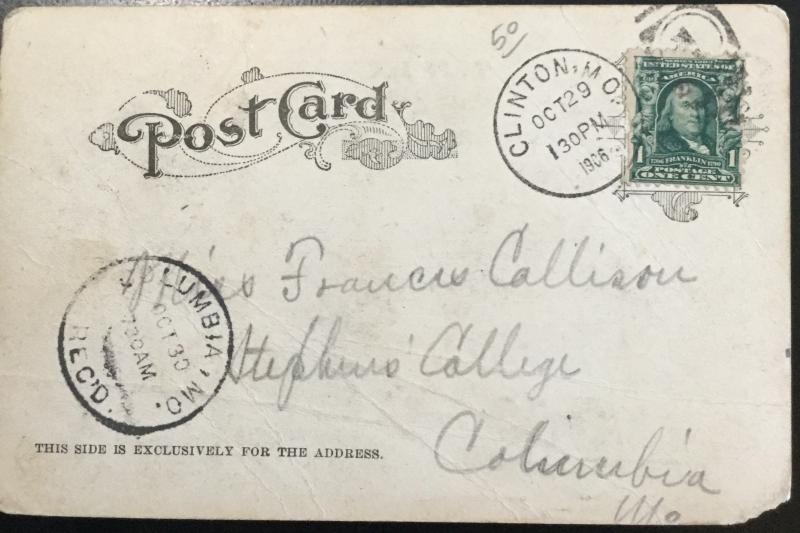 50
Post Card
CLINTON, MO.
OCT 29
130 PM
1906
SERIES 1902
UNITED STATES OF
AMERICA
1 1706 FRANKLIN 1790 1
POSTAGE
ONE CENT
Miss Frances Callison
Stephens College
Columbia
Mo
LUMBIA, MO.
OCT 30
730 AM
REC'D.
THIS SIDE IS EXCLUSIVELY FOR THE ADDRESS.